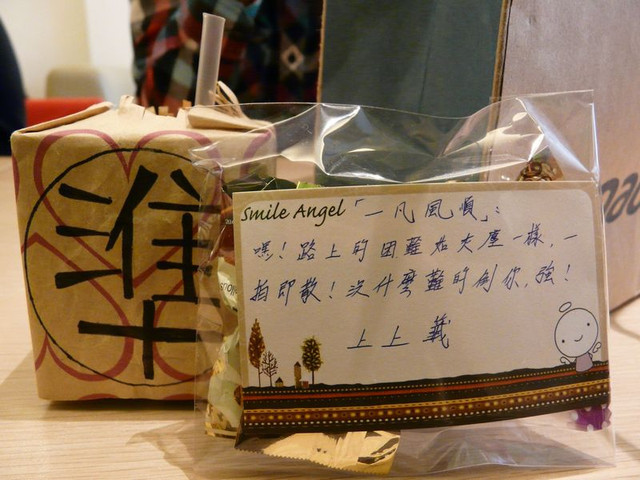 準
Smile Angel「一凡風順」:
嘿！路上的困難如灰塵一樣，一
拍即散！沒什麼難的倒你，強！
上上